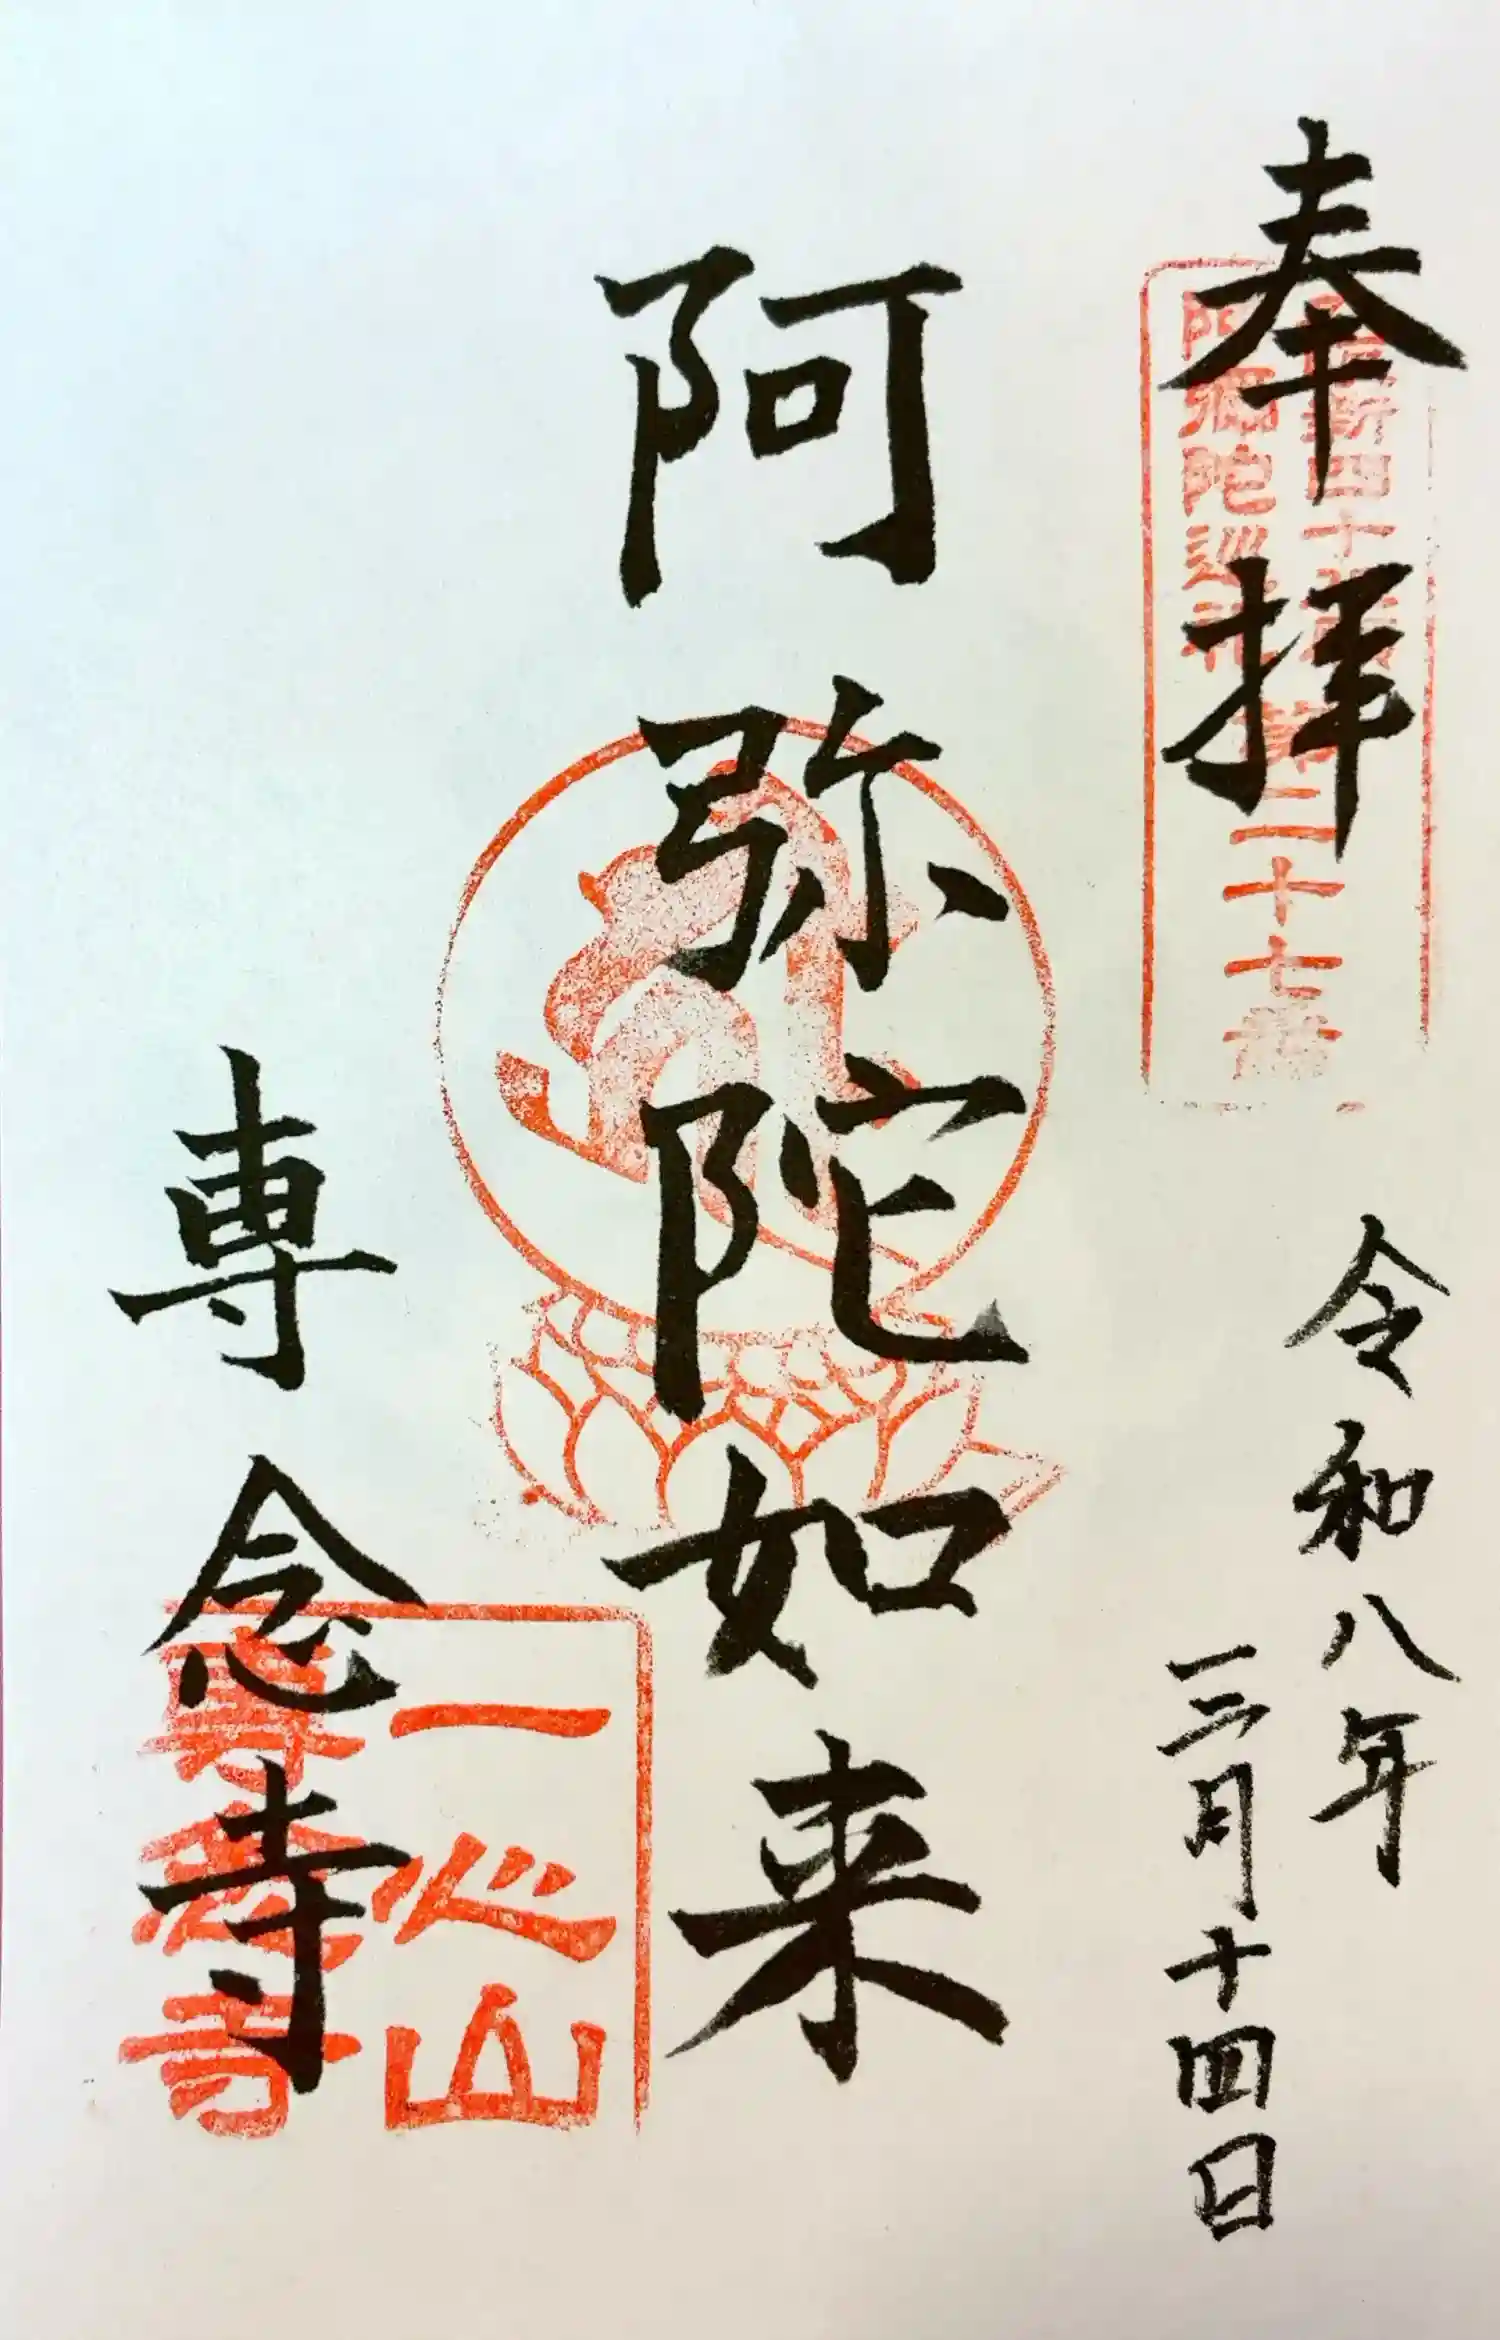 奉拝
令和八年
三月十四日
阿弥陀如来
専念寺
阿弥陀巡礼
第二十七番
一心山
専念寺